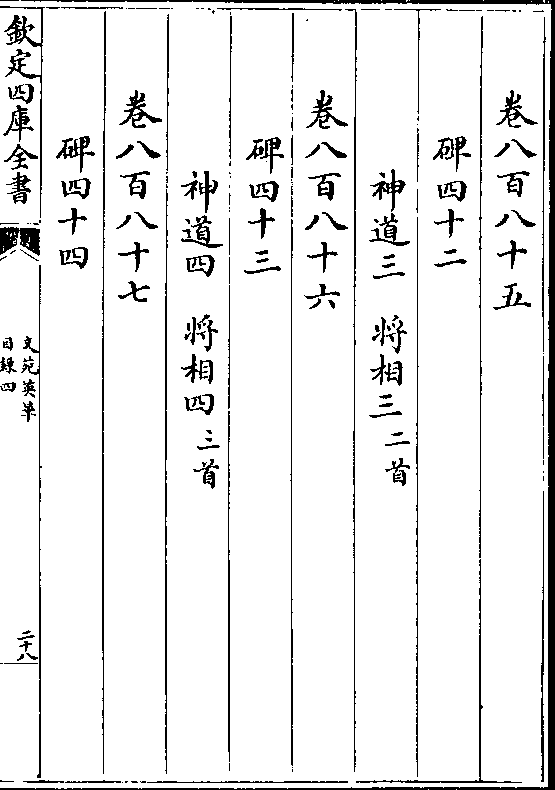 卷八百八十五
碑四十二
神道三 将相三二首
卷八百八十六
碑四十三
神道四 将相四三首
卷八百八十七
碑四十四
欽定四庫全書
文苑英華
目錄四
二十八